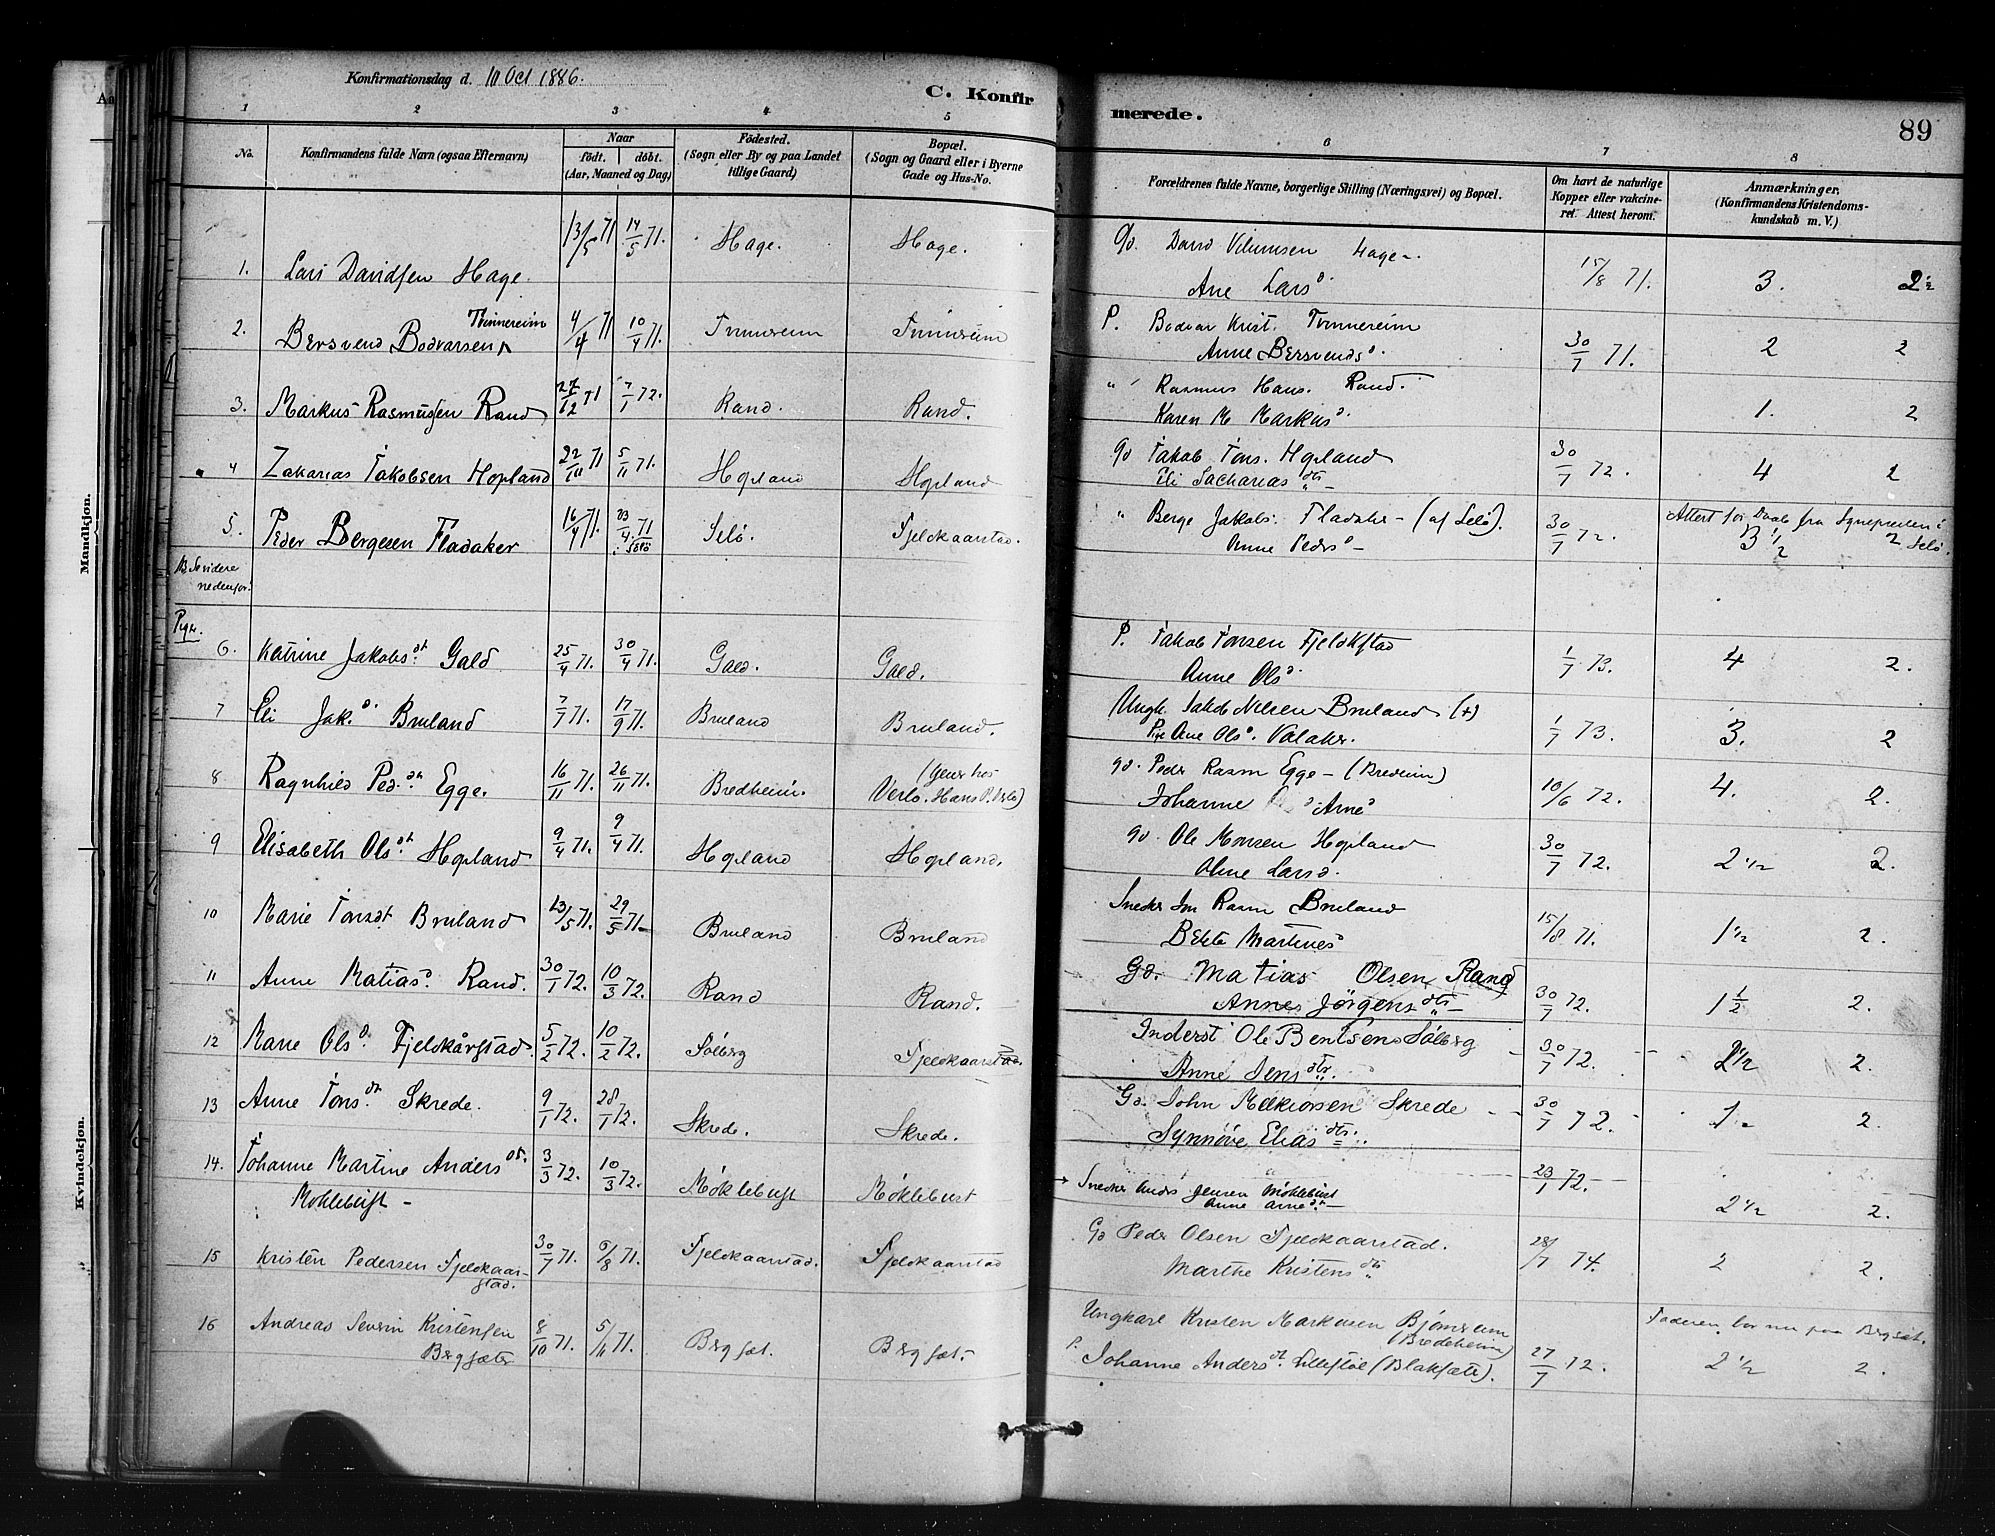 Konfirmationsdag d. 10 Oct 1886.
C. Konfir
merede.
89
1 2 3 4 5 6 7 8
No. Konfirmandens fulde Navn (ogsaa Efternavn) Naar födt. döbt. (Aar, Maaned og Dag) Födested. (Sogn eller By og paa Landet tillige Gaard) Bopæl. (Sogn og Gaard eller i Byerne Gade og Hus-No. Forældrenes fulde Navne, borgerlige Stilling (Næringsvei) og Bopæl. Om havt de naturlige Kopper eller vakcineret. Attest herom. Anmærkninger, (Konfirmandens Kristendomskundskab m. V.)
Mandkjon.
1. Lars Davidsen Hage. 13/5 71 14/5 71. Hage. Hage. Gd. David Hage
Ane Lars d 15/8 71. 3. 2
2. Bersvend Bodvarsen Tvinnereim 4/4 71 10/4 71. Tvinnereim Tvinnereim P. Bodvar Krist. Tvinnereim
Anne Bersvends d. 30/7 71. 2 2
3. Markus Rasmussen Rand 27/12 71 7/1 72. Rand. Rand. " Rasmus Hans. Rand.
Karen M Markus d. 1. 2
4 Zakarias Jakobsen Hopland 22/10 71 5/11 71. Hopland Hopland gd Jakob Jons. Hopland
Eli Sacharias dtr 30/7 72. 4 2
5. Peder Bergesen Fladaker 16/4 71. 23/4 71 Selö Selö. Fjeldkaarstad. " Berge Jakobs. Fladaker - (af Selö).
Anne Peders d - 30/7 72. Attest for Daab fra Sognepresten i Selö.
3 1/2 2
NB Se videre nedenfor.
Piger.
6. Katrine Jakobs dt Gald 25/4 71. 30/4 71. Gald. Gald. P. Jakob Jonsen Fjeldkstad
Anne Ols d. 1/7 73. 4 2.
7 Eli Jak. d. Bruland 7/7 71. 17/9 71. Bruland Bruland. Ungk. Jakob Nilsen Bruland (+)
Pige Ane Ols d. Valaker. 1/7 73. 3. 2
8 Ragnhild Ped. dt Egge. 16/11 71. 26/11 71. Bredheim. Verlo. Hans P. Verlo) gd. Peder Rasm Egge - (Bredeim)
Johanne Arne d 10/6 72. 4. 2.
9 Elisabeth Ols dt Hopland 9/4 71. 9/4 71. Hopland Hopland. gd. Ole Monsen Hopland
Oline Lars d. 30/7 72. 2 1/2 2.
10 Marie Jons dt Bruland 13/5 71. 29/5 71. Bruland Bruland Sneder Jon Rasm Bruland
Martines d 15/8 71. 1 1/2 2.
11 Anne Matias d. Rand. 30/1 72. 10/3 72. Rand Rand. Gd. Matias Olsen Rand
Anne Jörgens dtr - 30/7 72. 1 1/2 2.
12 Marie Ols d. Fjeldkårstad. 5/2 72. 10/2 72. Sölberg Fjeldkaarstad. Inderst Ole Bentsen Sölberg
Anne Jens dtr. 30/7 72. 2 1/2 2.
Kvindekjon.
13 Anne Jons dt Skrede. 9/1 72. 28/1 72. Skrede. Skrede. Gd. John Melkiorsen Skrede
Synnöve Elias dtr. 30/7 72. 2.
14. Johanne Martine Anders dt.
Möklebust - 3/3 72. 10/3 72. Möklebust Möklebust Sneder Anders Jensen Möklebust
Anne Arne dt - 23/1 72. 2 1/2 2.
15 Kristen Pedersen Fjeldkaarstad. 30/7 71. 6/8 71. Fjeldkaarstad. Fjeldkaarstad Gd Peder Olsen Fjeldkaarstad.
Marthe Kristens dtr 28/7 74. 2 2.
16 Andreas Severin Kristensen
Bergsæter 8/10 71. 5/11 71. Bergsæt. Bergsæt. Ungkarl Kristen Markusen Bjömreim
(Bredeheim)
P. Johanne Anders dt. Lillestöl (Blaksæter). 27/7 72. Faderen bor nu paa Bergsæt.
2 1/2 2.